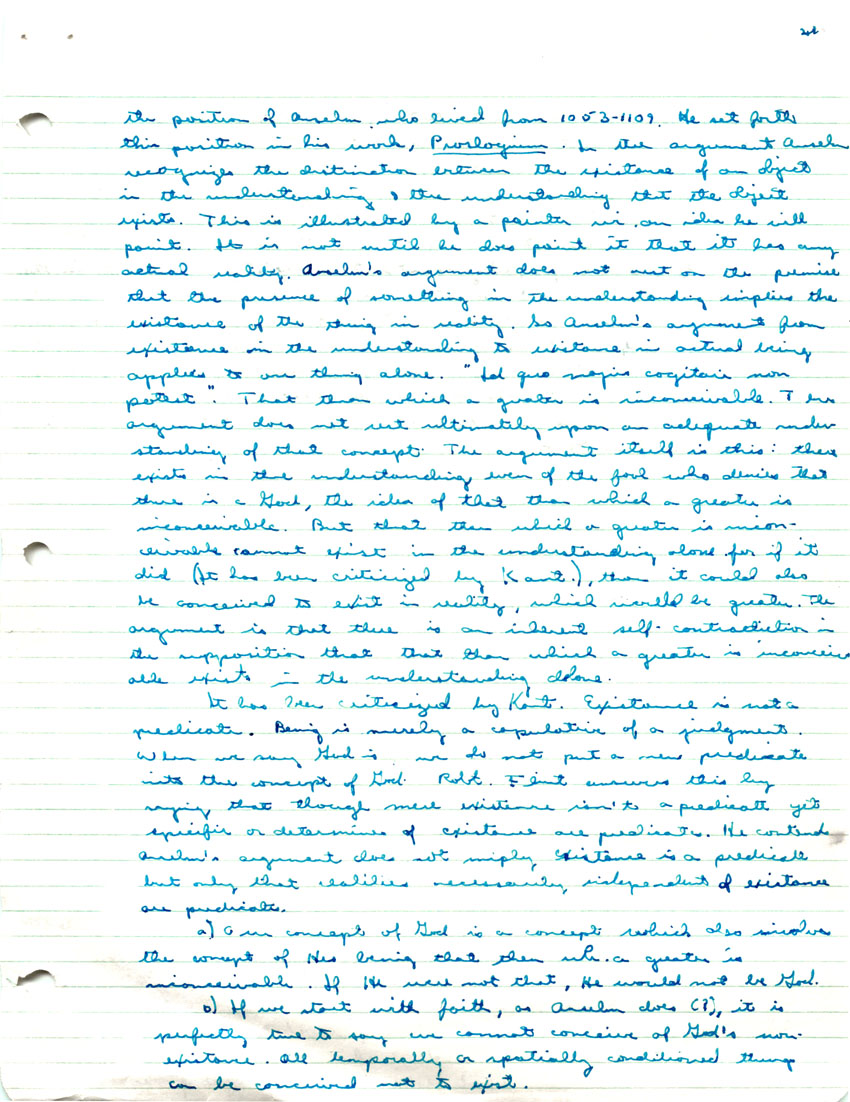 the position of Anselm who lived from 1053-1109. He set forth
this position in his work, Proslogium. In the argument Anselm
recognizes the distination between the existence of an object
in the understanding & the understanding that the object
exists. This is illustrated by a painter w. an idea he will
paint. It is not until he does paint it that it has any
actual reality. Anselm's argument does not rest on the premise
that the presence of something in the understanding implies the
existance of the thing in reality. So Anselm's argument from
existance in the understanding to existance in actual being
applies to one thing alone. "Id quo magis cogitari non
potest". That than which a greater is inconceivable. The
argument does not rest ultimately upon an adequate under-
standing of that concept. The argument itself is this: there
exists in the understanding even of the fool who denies that
there is a God, the idea of that than which a greater is
inconceivable. But that than which a greater is incon-
ceivable cannot exist in the understanding alone for if it
did (It has been criticized by Kant.), then it could also
be conceived to exist in reality, which would be greater. The
argument is that there is an inherent self-contradiction in
the supposition that that than which a greater is inconceiv
able exists in the understanding alone.
It has been criticized by Kant. Existance is not a
predicate. Being is merely a copulative of a judgment.
When we say God is we do not put a new predicate
into the concept of God. Robt. Flint answers this by
saying that though mere existence isn't a predicate yet
specific or determines of existance are predicate. He contends
Anselm's argument does not imply existance is a predicate
but only that realities necessarily independent of existance
are predicate.
a) Our concept of God is a concept which also involves
the concept of His being that then wh. a greater is
inconceivable. If He were not that, He would not be God.
b) If we start with faith, as Anselm does (?), it is
perfectly true to say we cannot conceive of God's non-
existance. All temporally or spatially conditioned things
can be conceived not to exist.